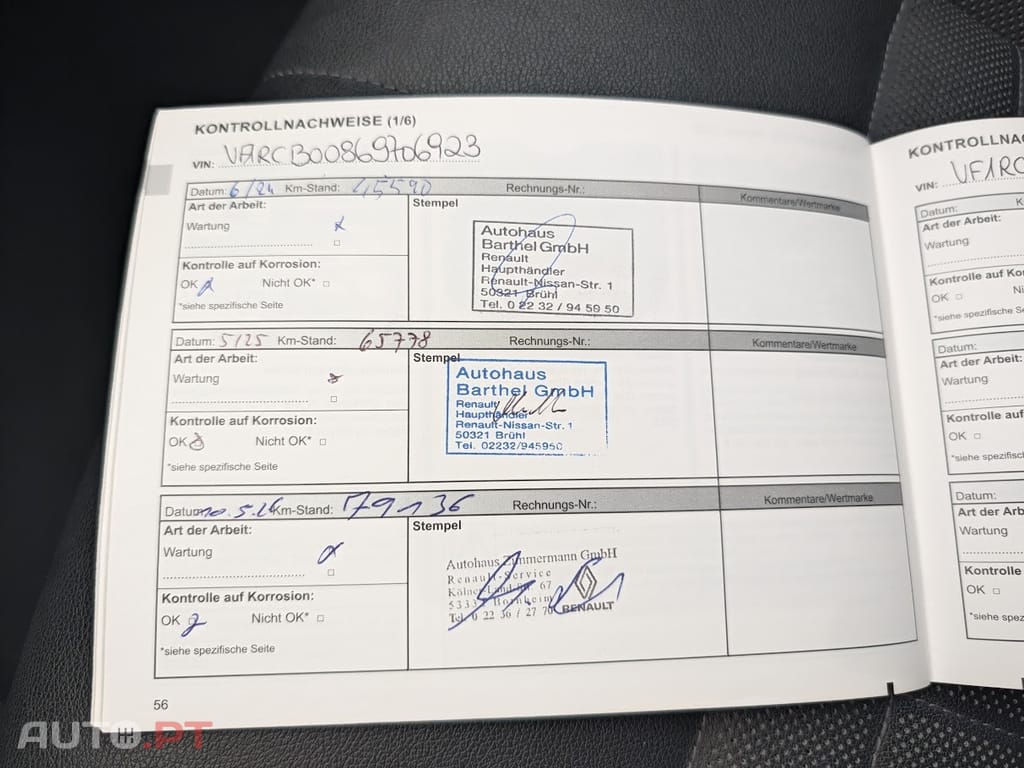 KONTROLLNACHWEISE (1/6)
VIN: VARCB00869706923
Datum: 6/24 Km-Stand: 45590 Rechnungs-Nr.: Kommentare/Wertmarke
Art der Arbeit: Stempel
Wartung
Autohaus
Barthel GmbH
Renault
Haupthändler
Renault-Nissan-Str. 1
50321 Brühl
Tel. 0 22 32 / 94 59 50
Kontrolle auf Korrosion:
OK Nicht OK*
*siehe spezifische Seite
Datum: 5/25 Km-Stand: 65778 Rechnungs-Nr.: Kommentare/Wertmarke
Art der Arbeit: Stempel
Wartung
Autohaus
Barthel GmbH
Renault
Haupthändler
Renault-Nissan-Str. 1
50321 Brühl
Tel. 02232/945950
Kontrolle auf Korrosion:
OK Nicht OK*
*siehe spezifische Seite
Datum: Km-Stand: 79136 Rechnungs-Nr.: Kommentare/Wertmarke
Art der Arbeit: Stempel
Wartung
Autohaus Zimmermann GmbH
Renault-Service
67
Bornheim
Tel. 0 22 36 / 27 70
RENAULT
Kontrolle auf Korrosion:
OK Nicht OK*
*siehe spezifische Seite
56
KONTROLLNAC
VIN: VF1RC
Datum: K
Art der Arbeit:
Wartung
Kontrolle auf Kor
OK Ni
*siehe spezifische Se
Datum:
Art der Arbeit:
Wartung
Kontrolle auf
OK
*siehe spezifisc
Datum:
Art der Arb
Wartung
Kontrolle
OK
*siehe spez
AUTO.PT